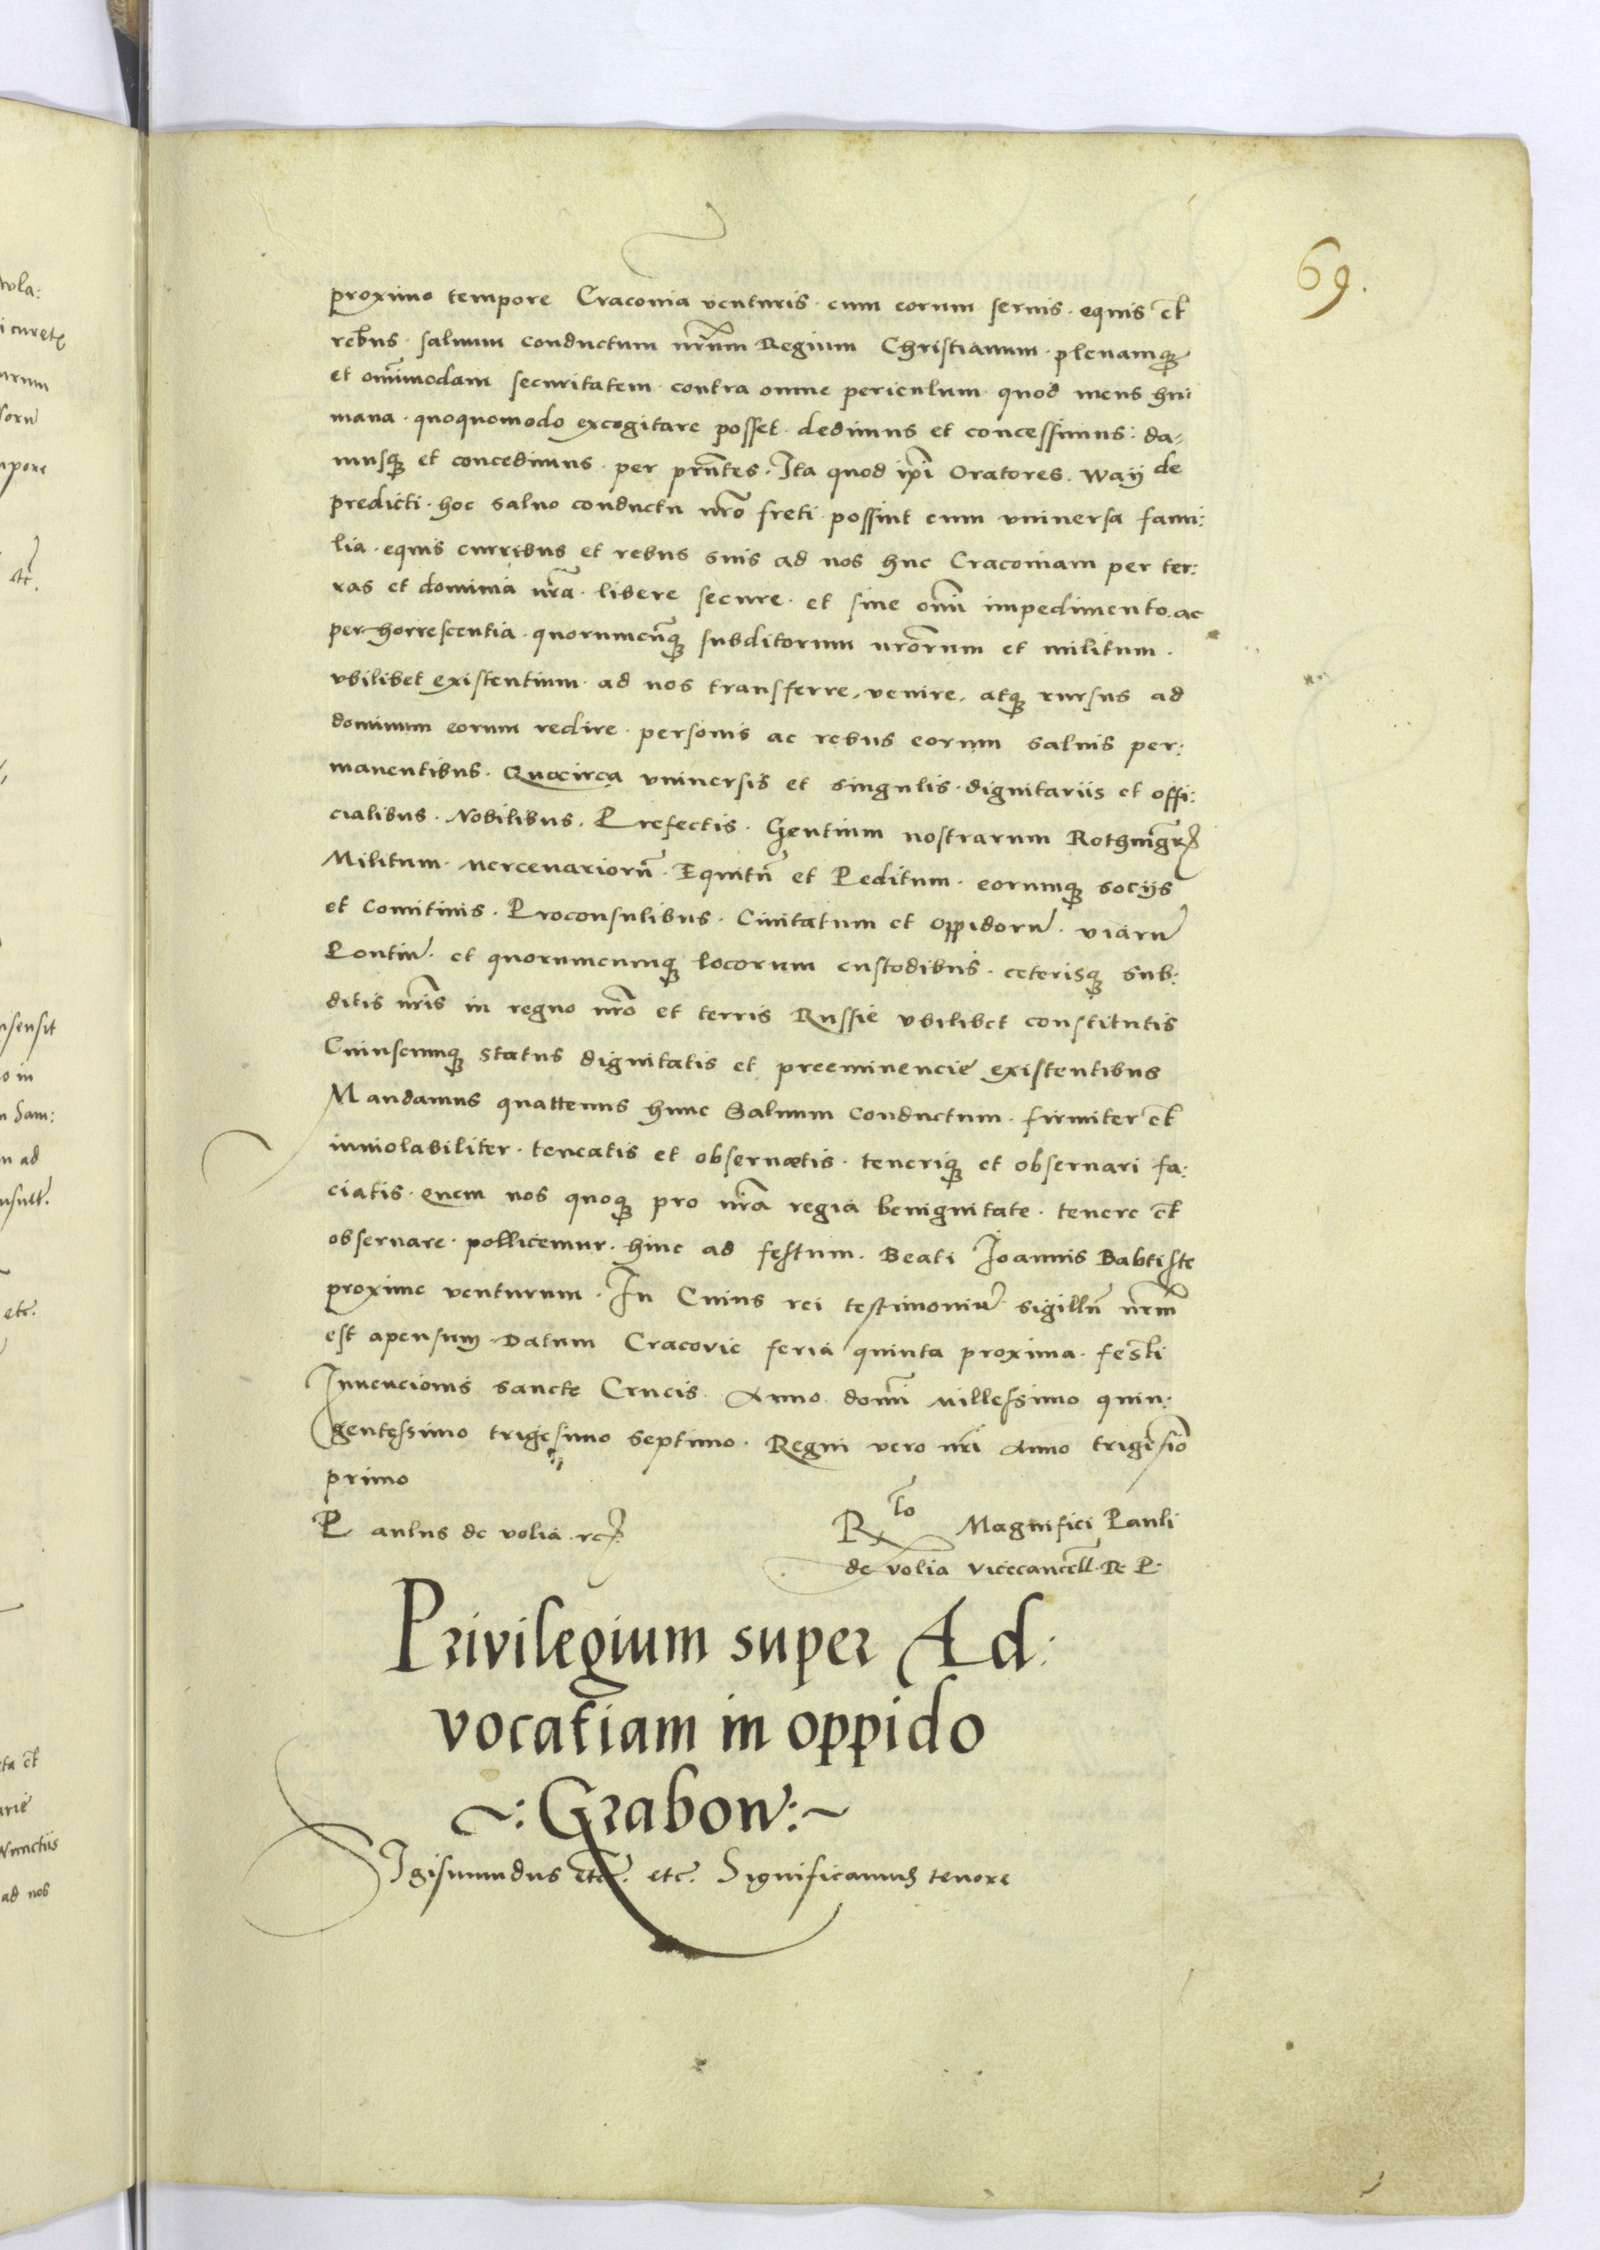 69.
proximo tempore Cracouia venturis · cum eorum seruis · equis et
rebus · saluum conductum nrũm Regium Christianum · plenamqꝫ
et omĩmodam securitatem · contra omne periculum · quod mens hu:
mana · quoquomodo excogitare posset · dedimus et concessimus: da,
musqꝫ et concedimus · per prñtes · Ita quod ip̃i Oratores . Wayde
predicti · hoc saluo conductu nrõ freti possint cum vniuersa fami:
lia · equis curribus et rebus suis ad nos huc Cracouiam per ter:
ras et dominia nrã · libere secure · et sine omĩ impedimento . ac
perhorrescentia · quorumcũqꝫ subditorum nrõrum et militum .
vbilibet existentium · ad nos transferre, venire, atqꝫ rursus ad
dominum eorum redire · personis ac rebus eorum saluis per:
manentibus · Quocirca vniuersis et singulis · dignitariis et offi:
cialibus · Nobilibus . Prefectis . Gentium nostrarum
Militum · mercenariorũ · Equitũ et Peditum · eorumqꝫ socijs
et Comitiuis . Proconsulibus . Ciuitatum et oppidorũ · viarũ
Pontiũ · et quorumcumqꝫ locorum custodibus · ceterisqꝫ sub:
ditis nrĩs in regno nrõ et terris Russie vbilibet constitutis
Cuiuscumqꝫ status dignitatis et preeminencie existentibus
Mandamus quattenus hunc Saluum Conductum · firmiter et
inuiolabiliter · teneatis et obseruetis · teneriqꝫ et obseruari fa:
ciatis · quem nos quoqꝫ pro nrã regia benignitate · tenere et
obseruare · pollicemur · hinc ad festum . Beati Joannis Babtiste
proxime venturum . In Cuius rei testimoniũ sigillũ nrm̃
est apensum . Datum Cracovie feria quinta proxima · festi
Inuencionis sancte Crucis . Anno dom̃i millessimo quin:
gentessimo trigesimo septimo . Regni vero nrĩ Anno trigesĩo
primo
Paulus de volia
Rtõ Magnifici Pauli
de volia vicecancell . R. P.
Privilegium super Ad:
vocatiam in oppido
~: Grabow :~
Sigismundus etc̃. etc. Significamus tenore